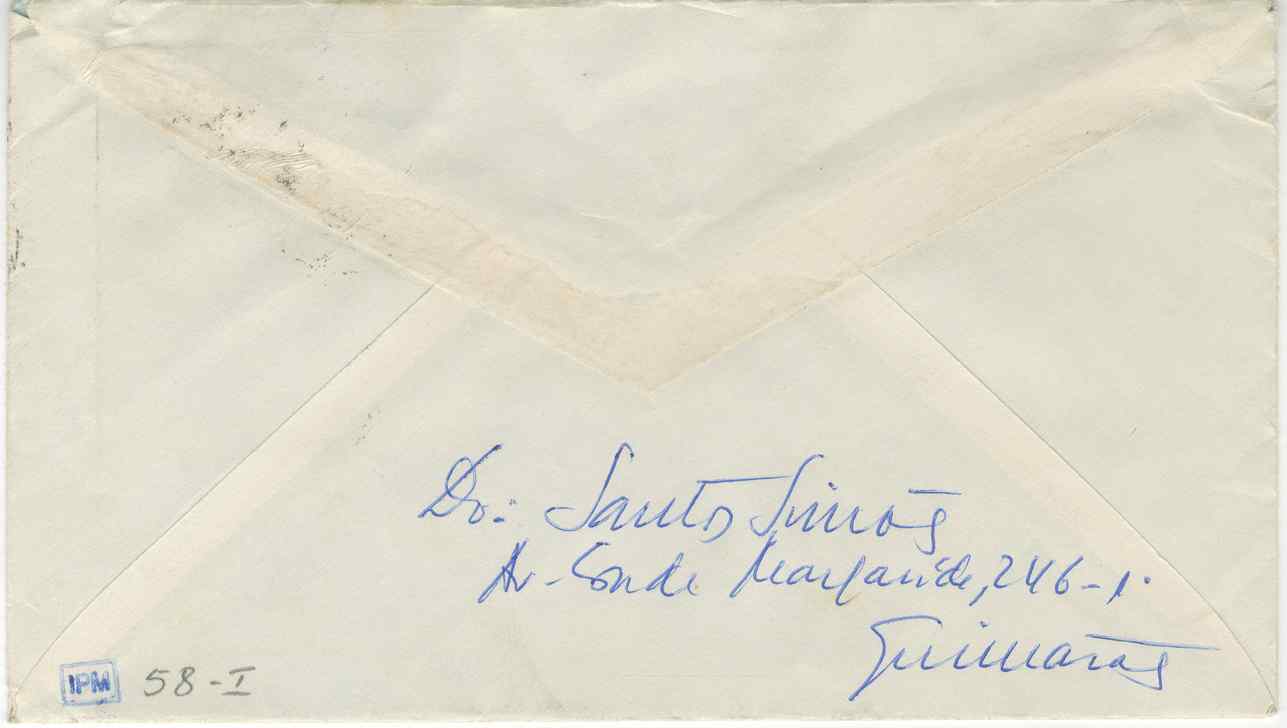 Dr: Santos Simões
Av. Conde Margaride, 246-1.
Guimarães
IPM 58-I